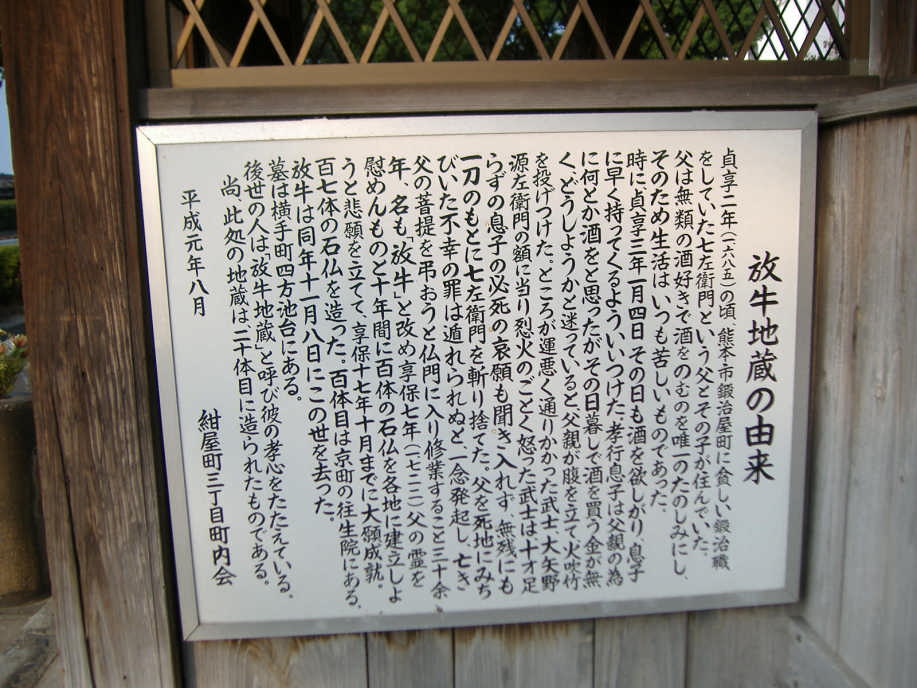 放牛地蔵の由来
貞享二年(一六八五)の頃、熊本市鍛治屋町に貧しい鍛治職
をしていた七左衛門という父とその子が住んでいた。
父は無類の酒好きで酒をのむのを唯一のたのしみにし、
そのため生活はいつも苦しいものであった。
時に貞享三年一月四日その日も酒を欲しがり、息子
に早く持ってくるよういいつけた。孝行息子は父親の為
に何とか酒をと思ったがその日暮しで酒を買う金が無
く、どうしようかと迷っていると父親が腹を立て、火吹竹
を投げつけた。ところが運悪く通りかかった武士大矢野
源左衛門の額に当り烈火のごとく怒った武士は十才足
らずの息子の必死の哀願も聞き入れず、無残にも
一刀のもとに七左衛門を斬り捨てた。父を死地にみち
びいた不幸の罪は遁れられぬと一念発起し、七き
父の菩提を弔おうと仏門に入り修業すること三十余
年、名も「放牛」と改め享保七年(一七二二)父の霊を
慰めんものと十年間に百体の石仏を各地に建立しよ
うと悲願を立てて、享保十七年十月までに大願成就。
百七体の石仏を造った。百体目は京町の往生院にある。
放牛は同年十一月八日にこの世を去った。
墓は横手町四方池台にある。
後世の人は「放牛地蔵」と呼び彼の孝心をたたえている。
尚、此処の地蔵は二十体目に造られたものである。
平成元年八月
紺屋町三丁目町内会